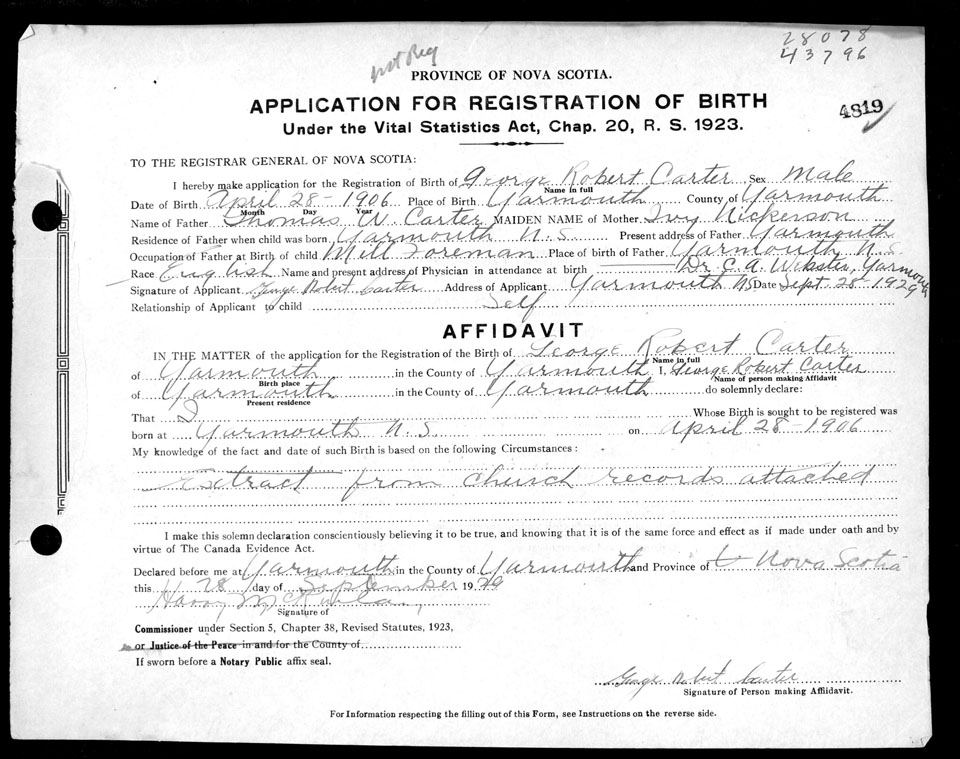 28078
43796
not Reg
PROVINCE OF NOVA SCOTIA.
APPLICATION FOR REGISTRATION OF BIRTH
4819
Under the Vital Statistics Act, Chap. 20, R. S. 1923.
TO THE REGISTRAR GENERAL OF NOVA SCOTIA:
I hereby make application for the Registration of Birth of George Robert Carter Sex Male
Name in full
Date of Birth April 28-1906 Place of Birth Yarmouth County of Yarmouth
Month Day Year
Name of Father Thomas W Carter MAIDEN NAME of Mother Ivy Nickerson
Residence of Father when child was born Yarmouth N.S Present address of Father Yarmouth
Occupation of Father at Birth of child Mill Foreman Place of birth of Father Yarmouth N.
Race English Name and present address of Physician in attendance at birth Dr C. A. Webster, Yarmouth
Signature of Applicant George Robert Carter Address of Applicant Yarmouth NS Date Sept. 28-1929
Relationship of Applicant to child Self
AFFIDAVIT
IN THE MATTER of the application for the Registration of the Birth of George Robert Carter
Name in full
of Yarmouth in the County of Yarmouth I, George Robert Carter
Birth place Name of person making Affidavit
of Yarmouth in the County of Yarmouth do solemnly declare:
Present residence
That I Whose Birth is sought to be registered was
born at Yarmouth N.S. on April 28-1906
My knowledge of the fact and date of such Birth is based on the following Circumstances:
Extract from church records attached
I make this solemn declaration conscientiously believing it to be true, and knowing that it is of the same force and effect as if made under oath and by
virtue of The Canada Evidence Act.
Declared before me at Yarmouth in the County of Yarmouth and Province of Nova Scotia
this 28 day of September 1929
Harry
Signature of
Commissioner under Section 5, Chapter 38, Revised Statutes, 1923,
or Justice of the Peace in and for the County of
If sworn before a Notary Public affix seal.
George Robert Carter
Signature of Person making Affidavit.
For Information respecting the filling out of this Form, see Instructions on the reverse side.